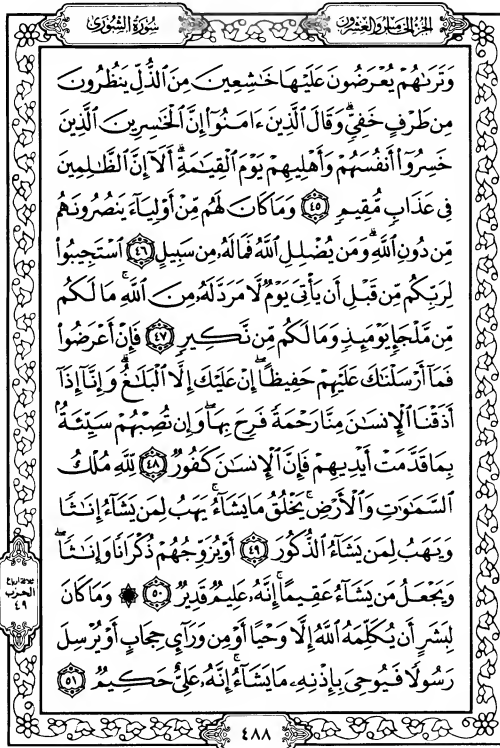 سُورَةُ الشُّورَى
الجزء الخامس والعشرون
وَتَرَىٰهُمْ يُعْرَضُونَ عَلَيْهَا خَٰشِعِينَ مِنَ ٱلذُّلِّ يَنظُرُونَ
مِن طَرْفٍ خَفِيٍّۗ وَقَالَ ٱلَّذِينَ ءَامَنُوٓا۟ إِنَّ ٱلْخَٰسِرِينَ ٱلَّذِينَ
خَسِرُوٓا۟ أَنفُسَهُمْ وَأَهْلِيهِمْ يَوْمَ ٱلْقِيَٰمَةِۗ أَلَآ إِنَّ ٱلظَّٰلِمِينَ
فِى عَذَابٍ مُّقِيمٍ ٤٥ وَمَا كَانَ لَهُم مِّنْ أَوْلِيَآءَ يَنصُرُونَهُم
مِّن دُونِ ٱللَّهِۗ وَمَن يُضْلِلِ ٱللَّهُ فَمَا لَهُۥ مِن سَبِيلٍ ٤٦ ٱسْتَجِيبُوا۟
لِرَبِّكُم مِّن قَبْلِ أَن يَأْتِىَ يَوْمٌ لَّا مَرَدَّ لَهُۥ مِنَ ٱللَّهِۚ مَا لَكُم
مِّن مَّلْجَإٍ يَوْمَئِذٍ وَمَا لَكُم مِّن نَّكِيرٍ ٤٧ فَإِنْ أَعْرَضُوا۟
فَمَآ أَرْسَلْنَٰكَ عَلَيْهِمْ حَفِيظًاۖ إِنْ عَلَيْكَ إِلَّا ٱلْبَلَٰغُۗ وَإِنَّآ إِذَآ
أَذَقْنَا ٱلْإِنسَٰنَ مِنَّا رَحْمَةً فَرِحَ بِهَاۖ وَإِن تُصِبْهُمْ سَيِّئَةٌۢ
بِمَا قَدَّمَتْ أَيْدِيهِمْ فَإِنَّ ٱلْإِنسَٰنَ كَفُورٌ ٤٨ لِّلَّهِ مُلْكُ
ٱلسَّمَٰوَٰتِ وَٱلْأَرْضِۚ يَخْلُقُ مَا يَشَآءُۚ يَهَبُ لِمَن يَشَآءُ إِنَٰثًا
وَيَهَبُ لِمَن يَشَآءُ ٱلذُّكُورَ ٤٩ أَوْ يُزَوِّجُهُمْ ذُكْرَانًا وَإِنَٰثًاۖ
وَيَجْعَلُ مَن يَشَآءُ عَقِيمًاۚ إِنَّهُۥ عَلِيمٌ قَدِيرٌ ٥٠ ۞ وَمَا كَانَ
لِبَشَرٍ أَن يُكَلِّمَهُ ٱللَّهُ إِلَّا وَحْيًا أَوْ مِن وَرَآئِ حِجَابٍ أَوْ يُرْسِلَ
رَسُولًا فَيُوحِىَ بِإِذْنِهِۦ مَا يَشَآءُۚ إِنَّهُۥ عَلِىٌّ حَكِيمٌ ٥١
ثلاثة أرباع
الحزب
٤٩
٤٨٨